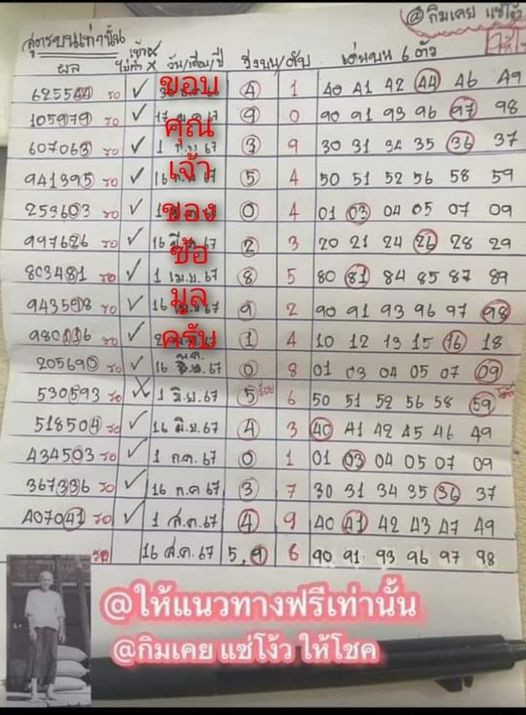 @กิมเคย แซ่โง้ว
สูตรบนเท่านั้น
ผล เข้า✓ ไม่เข้า X วัน/เดือน/ปี วิ่งบน/ดับ เด่นบน 6 ตัว
625544 รอ ✓ 4 1 40 41 42 44 46 49
105979 รอ ✓ 17 67 9 0 90 91 93 96 97 98
607063 รอ ✓ 1 67 3 9 30 31 34 35 36 37
941395 รอ ✓ 16 67 5 4 50 51 52 56 58 59
253603 รอ ✓ 1 67 0 4 01 03 04 05 07 09
997626 รอ ✓ 16 มี.ค. 67 2 3 20 21 24 26 28 29
803481 รอ ✓ 1 เม.ย. 67 8 5 80 81 84 85 87 89
943598 รอ ✓ 16 67 9 2 90 91 93 96 97 98
980116 รอ ✓ 2 67 1 4 10 12 13 15 16 18
205690 รอ ✓ 16 พ.ค. 67 0 8 01 03 04 05 07 09
530593 รอ X 1 มิ.ย. 67 5 6 50 51 52 56 58 59
518504 รอ ✓ 16 มิ.ย. 67 4 3 40 41 42 45 46 49
434503 รอ ✓ 1 ก.ค. 67 0 1 01 03 04 05 07 09
367336 รอ ✓ 16 ก.ค 67 3 7 30 31 34 35 36 37
407041 รอ ✓ 1 ส.ค. 67 4 9 40 41 42 43 47 49
รอ 16 ส.ค. 67 5,9 6 90 91 93 96 97 98
ขอบ
คุณ
เจ้า
ของ
ข้อ
มูล
ครับ
@ให้แนวทางฟรีเท่านั้น
@กิมเคย แซ่โง้ว ให้โชค